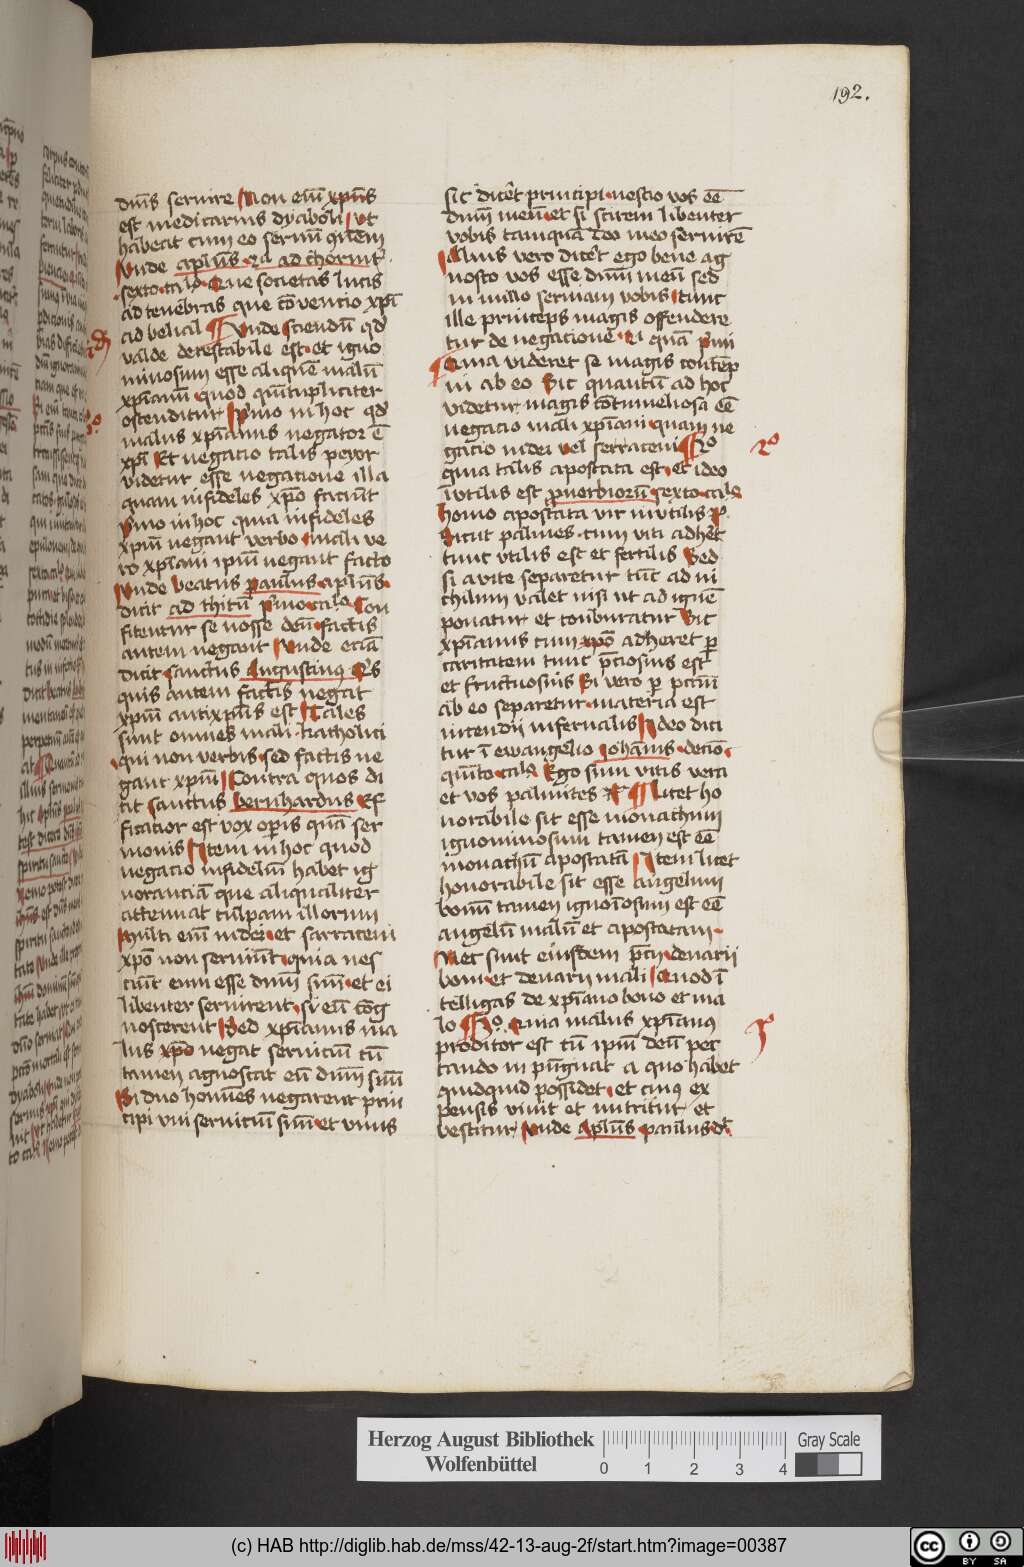 192.
dn̄s seruire Non em̄ xpn̄s
est medicarius dyaboli ut
habeat cum eo seruu̅ que̅m
Unde apl̄us ꝛa ad chorint̄
sexto cal͛o Que societas lucis
ad tenebras que co̅uencio xpī
ad belial ¶ Unde sciendu̅ qd̄
valde detestabile est et igno
miniosum esse aliquem malu̅
xp̅ianu̅ quod qui̅tupliciter
ostenditur Pͥmo in hoc qd̄
malus xp̅ianus negator e̅
xpī Et negacio talis peyor
videtur esse negacione illa
quam infideles xpo̅ faciu̅t
Pͥmo in hoc quia infideles
xpm̅ negant verbo mali ve
ro xp̅iani ipm̅ negant facto
Unde beatus paulus apl̄us
dicit ad thitu̅ pͥmo cal͛o Con
fitentur se nosse deu̅ factis
autem negant Unde etia̅
dicit sanctus Augustinus Qͥs
quis autem factis negat
xpm̅ antixpn̄s est Tales
sunt omnes mali katholici
qui non verbis sed factis ne
gant xpm̅ Contra quos di
cit sanctus bernhardus Ef
ficacior est vox op̅is qua̅ ser
monis Item in hoc quod
negacio infideliu̅ habet ig
norancia̅ que aliqualiter
attenuat culpam illorum
Multi em̄ iudei et sarraceni
xpo̅ non seruiu̅t quia nes
ciu̅t eum esse dn̅m suu̅ et ei
libenter seruirent si eu̅ co̅g
noscerent Sed xp̅ianus ma
lus xpo̅ negat seruiciu̅ cu̅
tamen agnoscat eu̅ dn̅m suu̅
Si duo homines negarent prin
cipi vni seruiciu̅ suu̅ et vnus
sic dicer̅t principi nescio vos ee̅
dn̅m meu̅ et si scirem libenter
vobis tamqua̅ deo meo seruire̅
Alius vero dicer̅t ego bene ag
nosco vos esse dn̅m meu̅ sed
in nullo seruiam vobis tunc
ille princeps magis offendere
tur de negacione Si qua̅ pͥmi
Quia videret se magis conte̅p
ni ab eo Sic quantu̅ ad hoc
videtur magis co̅tumeliosa ee̅
negacio mali xp̅iani quam ne
gacio iudei vel sarraceni ¶ 2o
2o
quia talis apostata est et ideo
iutilis est puerbioru̅ sexto cal͛o
homo apostata vir inutilis p͛
Sicut palmes cum viti adher̅t
tunc vtilis est et fertilis Sed
si a vite separetur tu̅c ad ni
chilum valet nisi ut ad igne̅
ponatur et conburatur Sic
xp̅ianus cum xpo̅ adheret p̱
caritatem tunc p̅ciosus est
et fructuosus Si vero p̱ pcm̅
ab eo separetur materia est
incendii infernalis Ideo dici
tur i̅ ewangelio Johannis decio̅
qui̅to cal͛o Ego sum vitis vera
et vos palmites ⁊c̅ ¶ Licet ho
norabile sit esse monachum
ignominiosum tamen est ee̅
monachu̅ apostata̅ Item licet
honorabile sit esse angelum
bonu̅ tamen ignoi̅osum est ee̅
angelu̅ malu̅ et apostatam
Nec sunt eiusdem p̅cii denarii
boni et denarii mali Quod i̅
telligas de xp̅iano bono et ma
lo ¶ 3o Quia malus xp̅ianus
3o
proditor est cu̅ ipm̅ deu̅ pec
cando in pu̅gnat a quo habet
quidquid possidet et cuius ex
pensis viuit et nutritur et
vestitur Unde Apl̄us paulus d͛t
Herzog August Bibliothek
Wolfenbüttel
0 1 2 3 4
Gray Scale
(c) HAB http://diglib.hab.de/mss/42-13-aug-2f/start.htm?image=00387
cc BY SA